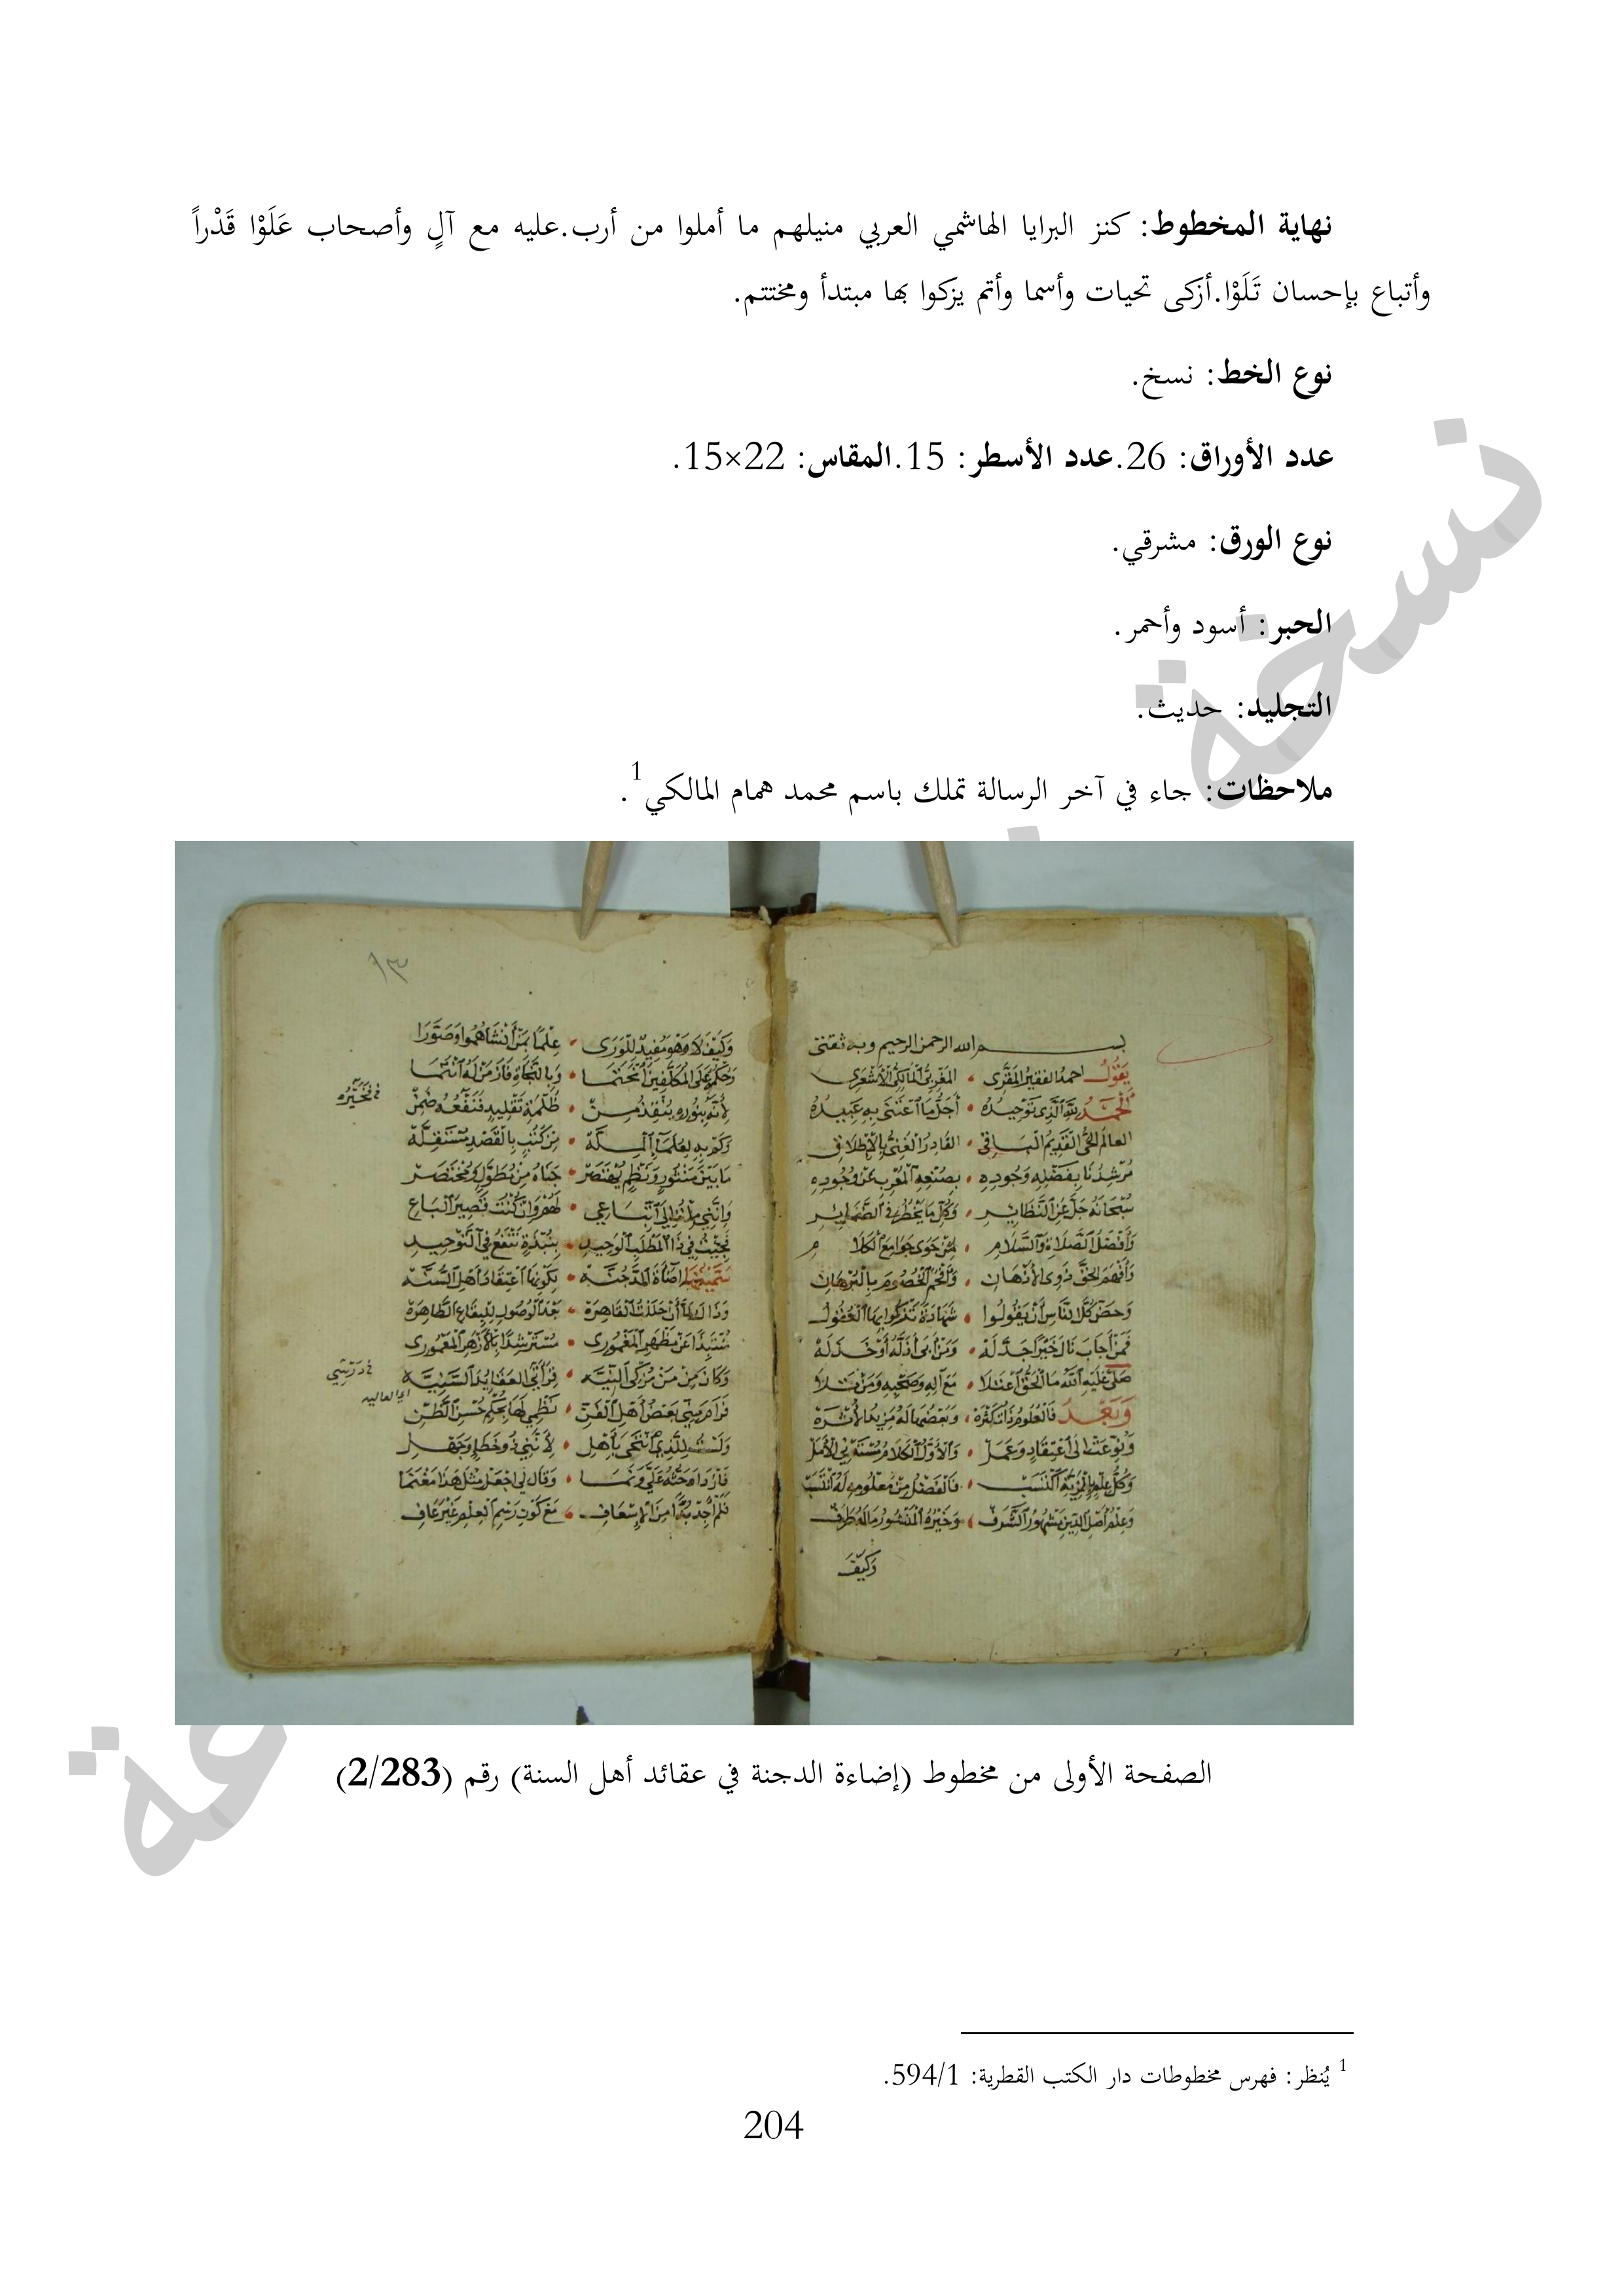 نهاية المخطوط: كنز البرايا الهاشمي العربي منيلهم ما أملوا من أرب.عليه مع آلٍ وأصحاب عَلَوْا قَدْراً
وأتباع بإحسان تَلَوْا.أزكى تحيات وأسما وأتم يزكوا بها مبتدأ ومختتم.
نوع الخط: نسخ.
عدد الأوراق: 26.عدد الأسطر: 15.المقاس: 22×15.
نوع الورق: مشرقي.
الحبر: أسود وأحمر.
التجليد: حديث.
ملاحظات: جاء في آخر الرسالة تملك باسم محمد همام المالكي1.
نسخة
بسم الله الرحمن الرحيم وبه ثقتي
يقول أحمد الفقير المقري • المغربي المالكي الأشعري
الحمد لله الذي توحيده • أجل ما اعتنى به عبيده
العالم الحي القديم الباقي • القادر الغني بالإطلاق
مرشدنا بفضله وجوده • بصنعه المغرب عن وجوده
سبحانه جل عن النظاير • وكل ما يخطر في الضماير
وأفضل الصلاة والسلام • لمن حوى جوامع الكلام
وأفهم الحق ذوي الأذهان • وأفحم الخصوم بالبرهان
وحض كل الناس أن يقولوا • شهادة تذكوا بها العقول
فمن أجاب نال خيرا جد له • ومن أبى أذله أو خذله
صلى عليه الله ما الحق اعتلا • مع آله وصحبه ومن تلا
وبعد فالعلوم ذات كثرة • وبعضها له مزيد الأثرة
ونوعت إلى اعتقاد وعمل • والأول الكلام مستدني الأمل
وكل علم للمزية انتسب • فالفضل من معلومه له انتسب
وعلم أصل الدين مشهور الشرف • وخيره المنشور ما له طرف
وكيف
١٣
وكيف لا وهو مفيد للورى • علما بمن أنشاهموا وصورا
وحكمه على المكلفين انحتما • وبالنجاة فاز من له انتما
لأنه بنوره ينقذ من • ظلمة تقليد فنفعه ضمن
وكم به لعلما الملة • من كتب بالقصد مستقلة
ما بين منثور ونظم يهتصر • جناه من مطول ومختصر
وإنني ملت إلى اتباعي • لهم وإن كنت قصير الباع
فجيت في ذا المطلب الوحيد • بنبذة تنفع في التوحيد
سميتها إضاءة الدجنة • بكونها اعتقاد أهل السنة
وذاك لما أن حللت القاهرة • بعد الوصول للبقاع الطاهرة
منتبذا عن مظهر المغموري • مسترشدا بالأزهر المعموري
وكان من من مزكي النية • قرأتي العقايد السنية
فرام مني بعض أهل الفن • نظمي لها بحكم حسن الظن
ولست للذي انتحى بأهل • لأنني ذو خطإ وجهل
فازداد حثه علي ونما • وقال لي اجعل مثل هذا مغنما
فلم أجد بدا من الإسعاف • مع كون رسم العلم غير عاف
الصفحة الأولى من مخطوط (إضاءة الدجنة في عقائد أهل السنة) رقم (2/283)
1 يُنظر: فهرس مخطوطات دار الكتب القطرية: 594/1.
204